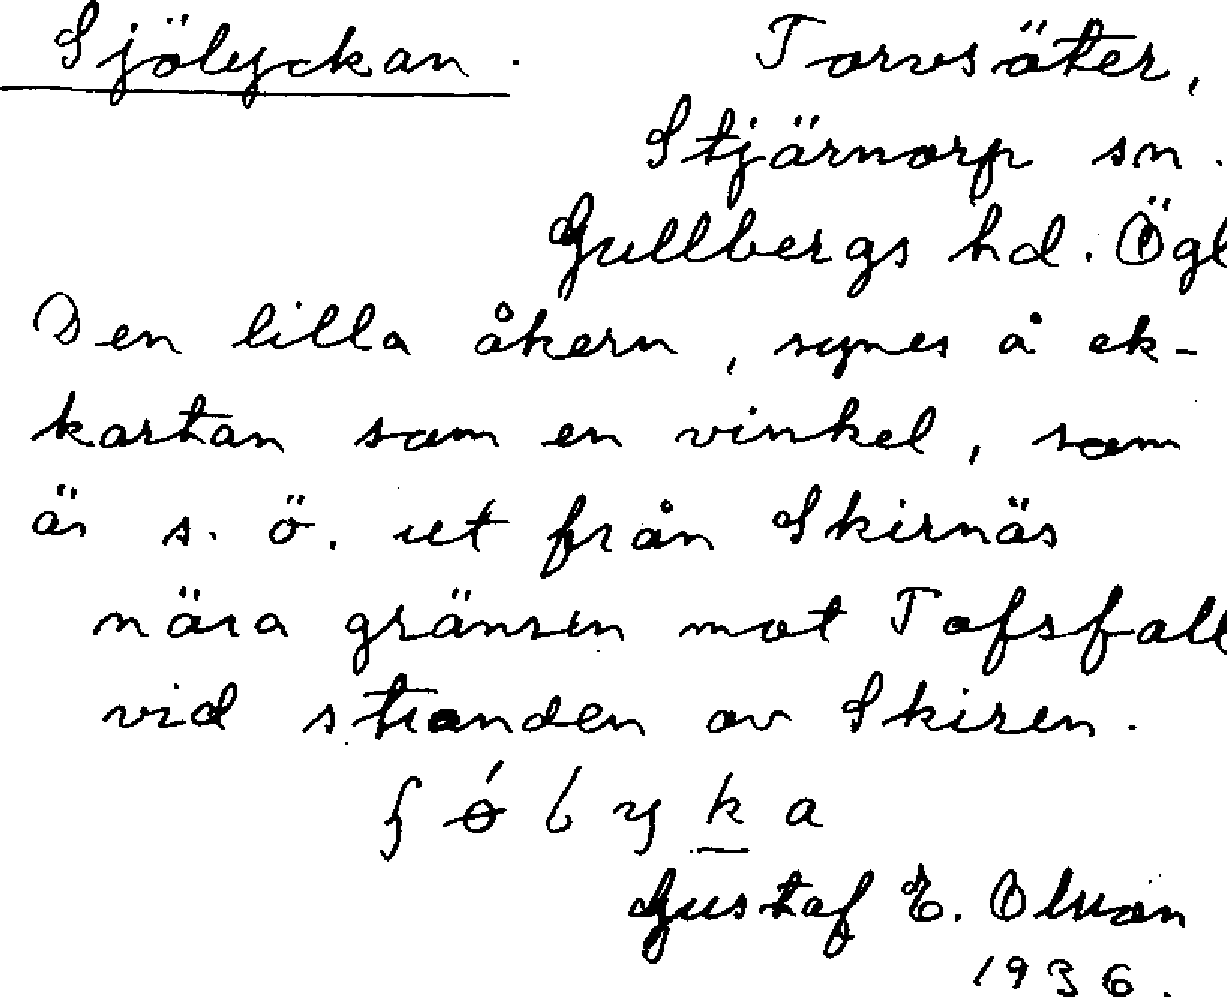 Sjölyckan. Torvsäter,
Stjärnorp sn.
Gullbergs hd. Ögl
Den lilla åkern, synes å ek-
kartan som en vinkel, som
är s. ö. ut från Skirnäs
nära gränsen mot Tofsfall
vid stranden av Skiren.
Gustaf E. Olsson
1936.